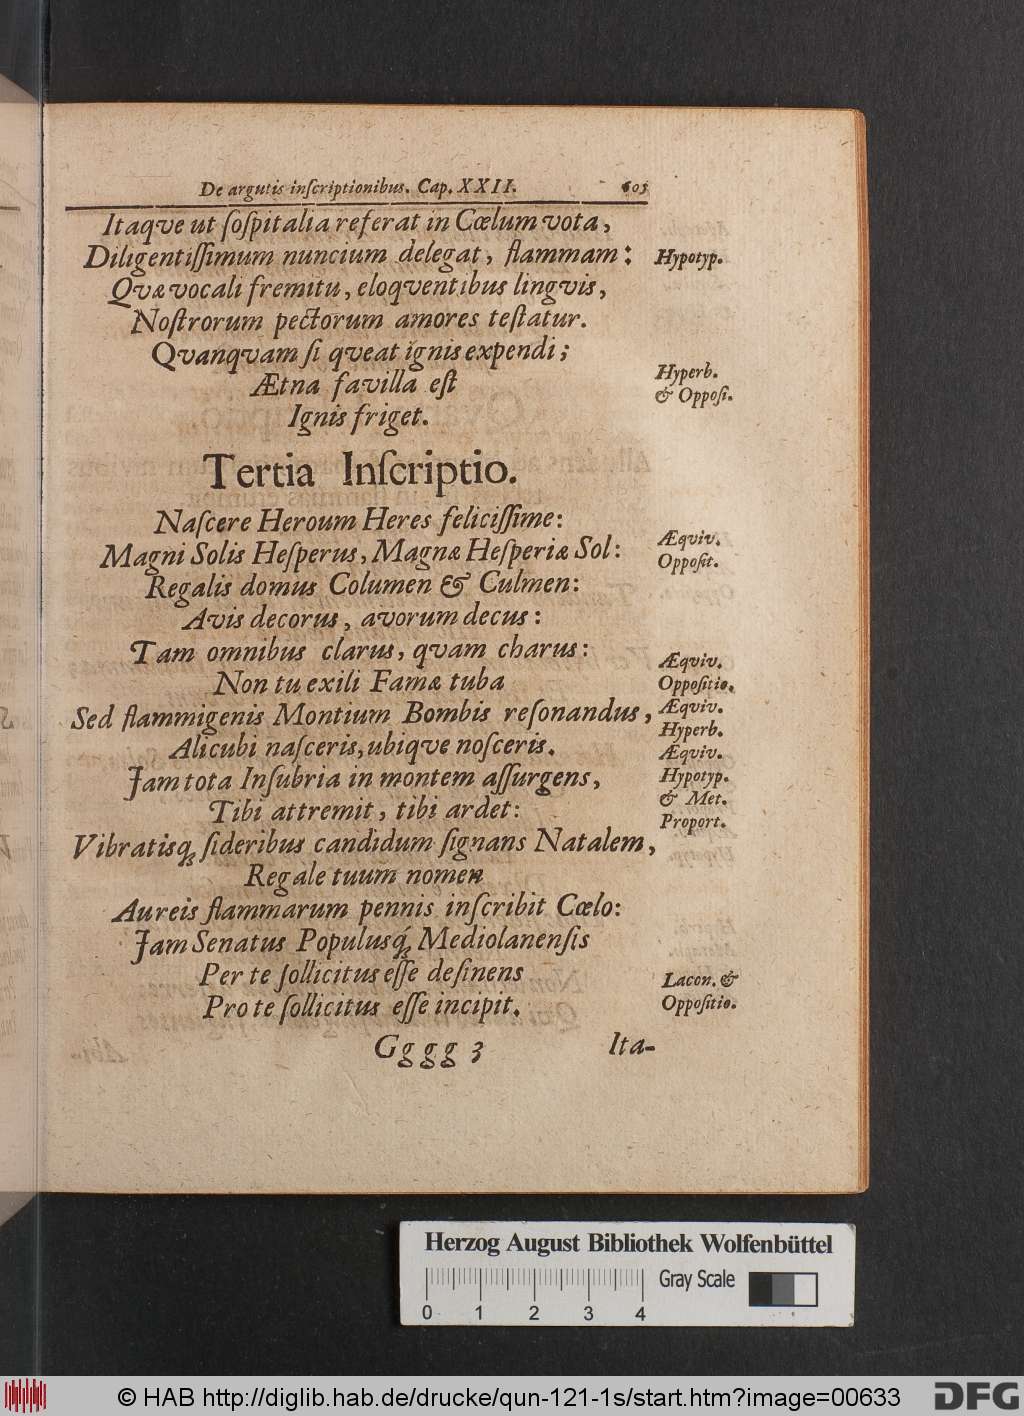 De argutis inſcriptionibus. Cap. XXII. 603
Itaqve ut ſoſpitalia referat in Cœlum vota,
Diligentiſſimum nuncium delegat, flammam: Hypotyp.
Qvæ vocali fremitu, eloqventibus lingvis,
Noſtrorum pectorum amores teſtatur.
Qvanqvam ſi qveat ignis expendi;
Ætna favilla eſt Hyperb.
& Oppoſi.
Ignis friget.
Tertia Inſcriptio.
Naſcere Heroum Heres feliciſſime:
Magni Solis Heſperus, Magnæ Heſperiæ Sol: Æqviv.
Oppoſit.
Regalis domus Columen & Culmen:
Avis decorus, avorum decus:
Tam omnibus clarus, qvam charus: Æqviv.
Non tu exili Famæ tuba Oppoſitio.
Sed flammigenis Montium Bombis reſonandus, Æqviv.
Hyperb.
Alicubi naſceris, ubiqve noſceris. Æqviv.
Jam tota Inſubria in montem aſſurgens, Hypotyp.
& Met.
Tibi attremit, tibi ardet: Proport.
Vibratisq; ſideribus candidum ſignans Natalem,
Regale tuum nomen
Aureis flammarum pennis inſcribit Cœlo:
Jam Senatus Populusq́; Mediolanenſis
Per te ſollicitus eſſe deſinens Lacon. &
Pro te ſollicitus eſſe incipit. Oppoſitio.
Gggg 3 Ita-
Herzog August Bibliothek Wolfenbüttel
Gray Scale
0 1 2 3 4
© HAB http://diglib.hab.de/drucke/qun-121-1s/start.htm?image=00633
DFG